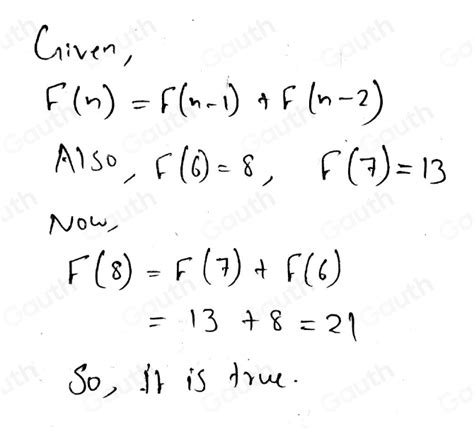 Given,
F(n) = F(n-1) + F(n-2)
Also, F(6) = 8, F(7) = 13
Now,
F(8) = F(7) + F(6)
= 13 + 8 = 21
So, It is true.